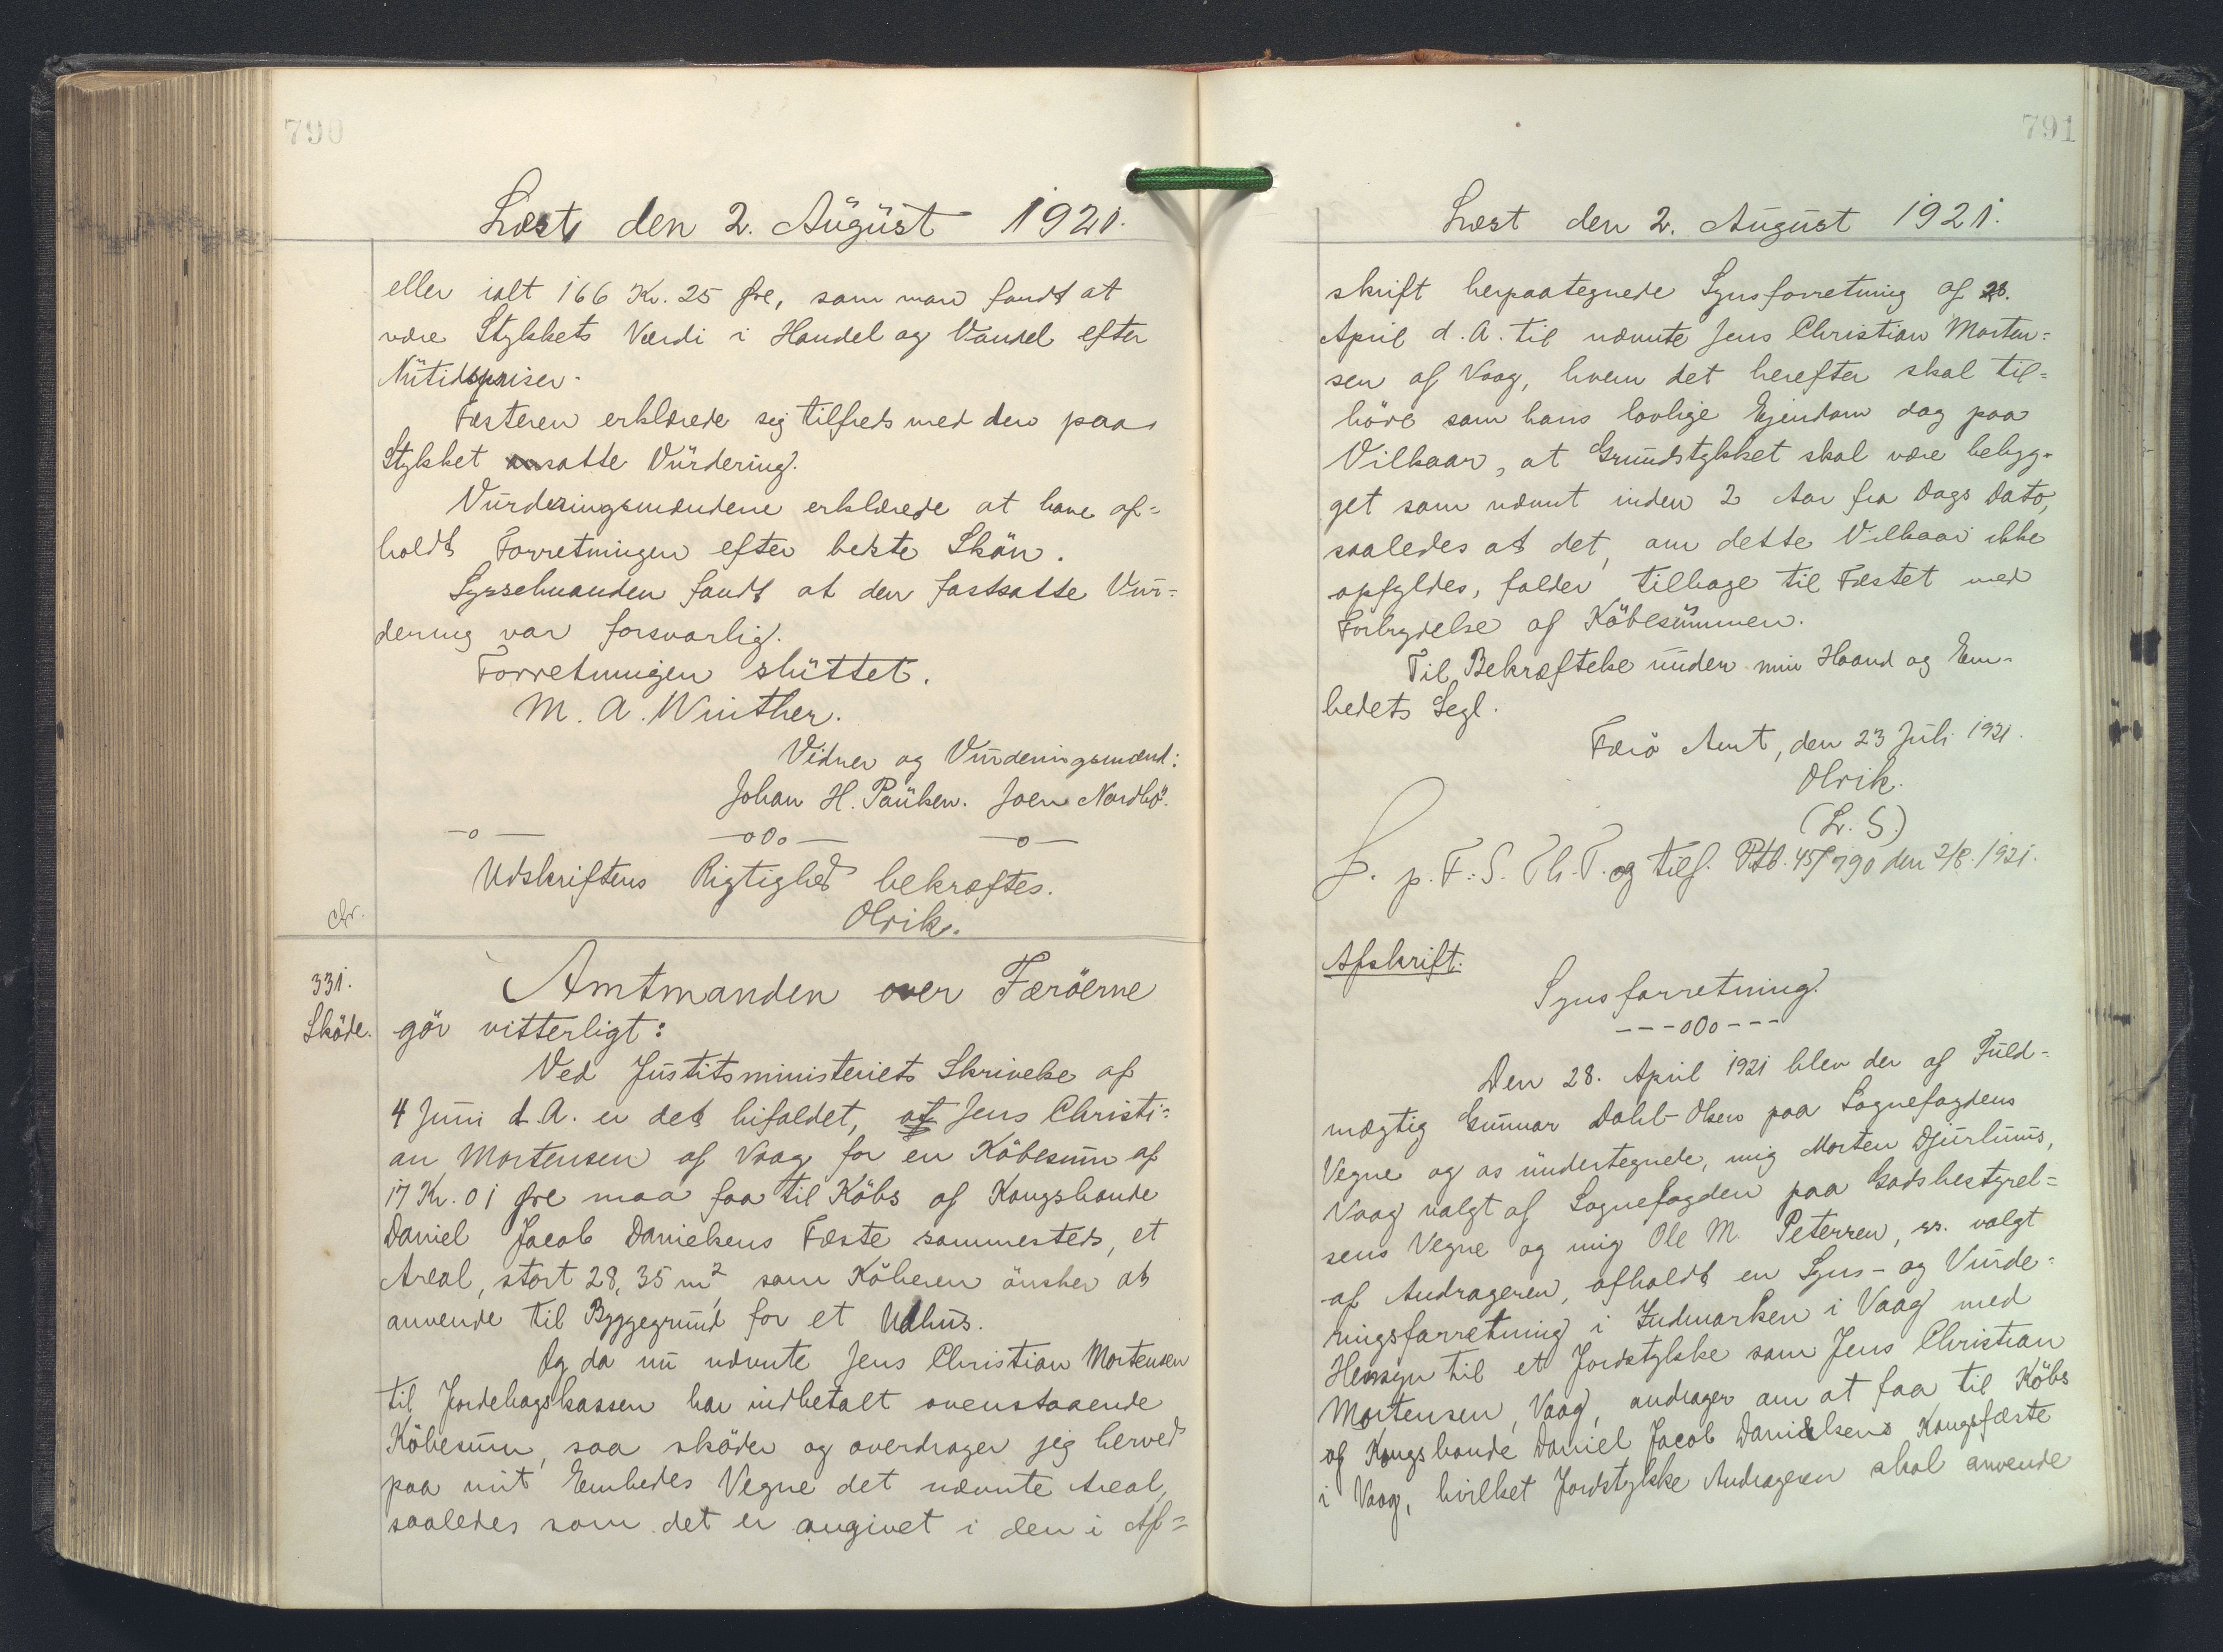 790
Læst den 2. August 1921.
eller ialt 166 Kr. 25 Øre, som man fandt at
være Stykkets Værdi i Handel og Vandel efter
Nutidspriser.
Fæsteren erklærede sig tilfreds med den paa
Stykket ansatte Vurdering.
Vurderingsmændene erklærede at have af=
holdt Forretningen efter bedste Skön.
Sysselmanden fandt at den fastsatte Vur=
dering var forsvarlig.
Forretningen sluttet.
M. A. Winther.
Vidner og Vurderingsmænd:
Johan H. Paulsen. Joen Nordbö.
-o- -oOo- -o-
Udskriftens Rigtighed bekræftes.
Olrik.
331.
Sköde.
Amtmanden over Færöerne
gör vitterligt:
Ved Justitsministeriets Skrivelse af
4 Juni d. A. er det bifaldet, at Jens Christi=
an Mortensen af Vaag for en Köbesum af
17 Kr. 01 Øre maa faa til Köbs af Kongsbonde
Daniel Jacob Danielsens Fæste sammesteds, et
Areal, stort 28,35 m², som Köberen önsker at
anvende til Byggegrund for et Udhus.
Og da nu nævnte Jens Christian Mortensen
til Jordebogskassen har indbetalt ovenstaaende
Köbesum, saa sköder og overdrager jeg herved
paa mit Embedes Vegne det nævnte Areal,
saaledes som det er angivet i den i Af=
791
Læst den 2. August 1921.
skrift herpaategnede Synsforretning af 28.
April d. A. til nævnte Jens Christian Morten=
sen af Vaag, hvem det herefter skal til=
höre som hans lovlige Ejendom dog paa
Vilkaar, at Grundstykket skal være bebyg=
get som nævnt inden 2 Aar fra Dags Dato,
saaledes at det, om dette Vilkaar ikke
opfyldes, falder tilbage til Fæstet med
Forbrydelse af Köbesummen.
Til Bekræftelse under min Haand og Em=
bedets Segl.
Færö Amt, den 23 Juli 1921.
Olrik.
(L. S.)
L. p. F. S. Th. T. og tilf. Ptb. 45/790 den 2/8. 1921.
Afskrift.
Synsforretning.
---oOo---
Den 28. April 1921 blev der af Fuld=
mægtig Gunnar Dahl-Olsen paa Sognefogdens
Vegne og os undertegnede, mig Morten Djurhuus,
Vaag valgt af Sognefogden paa Godsbestyrel=
sens Vegne og mig Ole M. Petersen, ss. valgt
af Andrageren, afholdt en Syns- og Vurde=
ringsforretning i Indmarken i Vaag med
Hensyn til et Jordstykke som Jens Christian
Mortensen, Vaag, andrager om at faa til Köbs
af Kongsbonde Daniel Jacob Danielsens Kongsfæste
i Vaag, hvilket Jordstykke Andrageren skal anvende